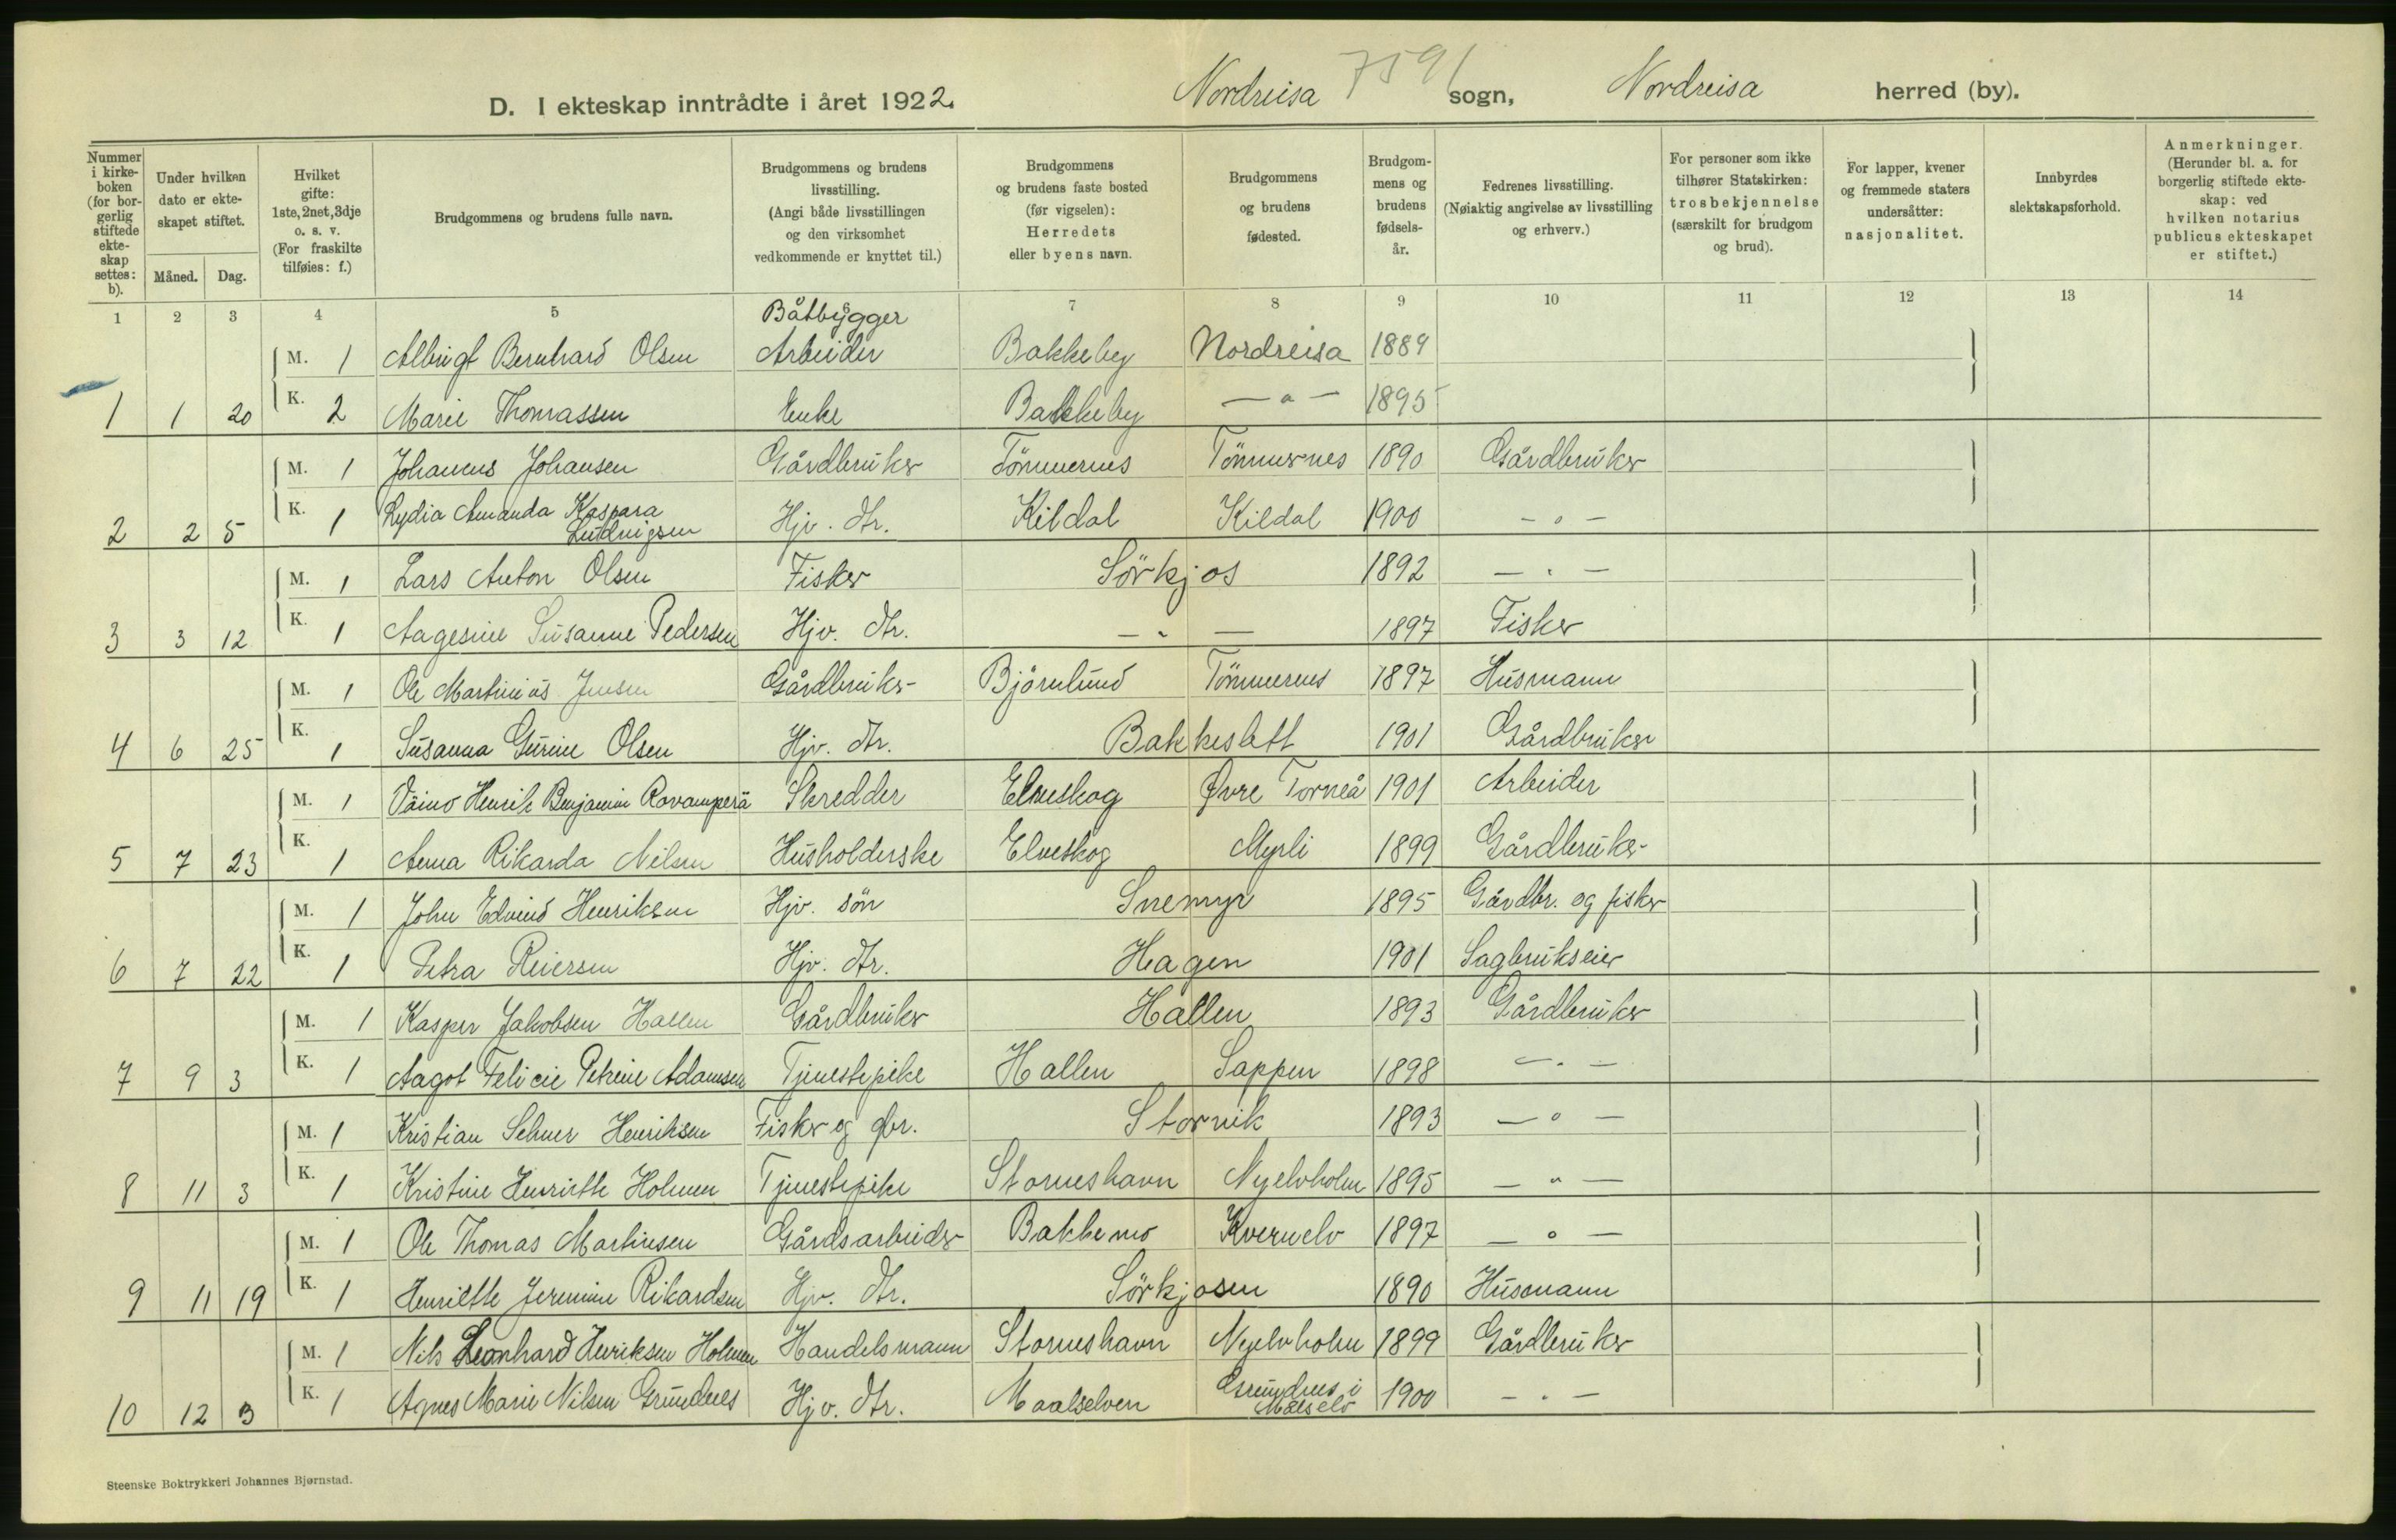 D. I ekteskap inntrådte i året 1922. Nordreisa 7591 sogn, Nordreisa herred (by).
Nummer i kirkeboken (for borgerlig stiftede ekteskap settes: b).
Under hvilken dato er ekteskapet stiftet.
Måned. Dag.
Hvilket gifte: 1ste, 2net, 3dje o. s. v. (For fraskilte tilføies: f.)
Brudgommens og brudens fulle navn.
Brudgommens og brudens livsstilling. (Angi både livsstillingen og den virksomhet vedkommende er knyttet til.)
Brudgommens og brudens faste bosted (før vigselen): Herredets eller byens navn.
Brudgommens og brudens fødested.
Brudgommens og brudens fødselsår.
Fedrenes livsstilling. (Nøiaktig angivelse av livsstilling og erhverv.)
For personer som ikke tilhører Statskirken: trosbekjennelse (særskilt for brudgom og brud).
For lapper, kvener og fremmede staters undersåtter: nasjonalitet.
Innbyrdes slektskapsforhold.
Anmerkninger. (Herunder bl. a. for borgerlig stiftede ekteskap: ved hvilken notarius publicus ekteskapet er stiftet.)
1 2 3 4 5 7 8 9 10 11 12 13 14
Båtbygger
M. 1 Albrigt Bernhard Olsen Arbeider Bakkeby Nordreisa 1889
1 1 20 K. 2 Marie Thomassen Enke Bakkeby — " — 1895
M. 1 Johannes Johansen Gårdbruker Tömmernes Tömmernes 1890 Gårdbruker
2 2 5 K. 1 Lydia Amanda Kaspara Ludvigsen Hjv. dtr. Kildal Kildal 1900 — " —
M. 1 Lars Anton Olsen Fisker Sörkjos 1892 — " —
3 3 12 K. 1 Aagesine Susanne Pedersen Hjv. dtr. — " — 1897 Fisker
M. 1 Ole Martinius Jensen Gårdbruker Björnlund Tömmernes 1897 Husmann
4 6 25 K. 1 Susanna Gurine Olsen Hjv. dtr. Bakkeslett 1901 Gårdbruker
M. 1 Väinö Henrik Benjamin Rovamperä Skredder Elveskog Øvre Torneå 1901 Arbeider
5 7 23 K. 1 Anna Rikarda Nilsen Husholderske Elveskog Myrli 1899 Gårdbruker
M. 1 John Edvind Henriksen Hjv. sön Snemyr 1895 Gårdbr. og fisker
6 7 22 K. 1 Petra Reiersen Hjv. dtr. Hagen 1901 Sagbrukseier
M. 1 Kasper Jakobsen Hallen Gårdbruker Hallen 1893 Gårdbruker
7 9 3 K. 1 Aagot Felicie Petrine Adamsen Tjenestepike Hallen Sappen 1898 — " —
M. 1 Kristian Selmer Henriksen Fisker og gbr. Storvik 1893 — " —
8 11 3 K. 1 Kristine Henriette Holmen Tjenestepike Storneshavn Nyelvholm 1895 — " —
M. 1 Ole Thomas Martinsen Gårdsarbeider Bakkemo Kvernelv 1897 — " —
9 11 19 K. 1 Henriette Jeremine Rikardsen Hjv. dtr. Sörkjosen 1890 Husmann
M. 1 Nils Leonhard Henriksen Holmen Handelsmann Storneshavn Nyelvholm 1899 Gårdbruker
10 12 3 K. 1 Agnes Marie Nilsen Grundnes Hjv. dtr. Maalselven Grundnes i Målselv 1900 — " —
Steenske Boktrykkeri Johannes Bjørnstad.